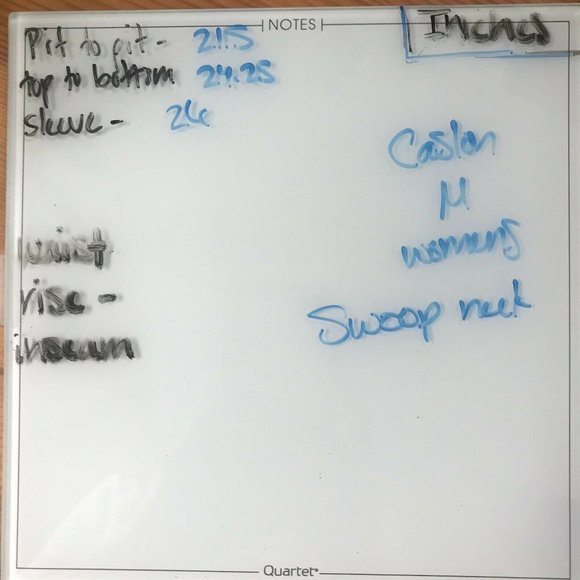 NOTES
Inches
Pit to pit - 21.5
top to bottom 24.25
sleeve - 26
Caslon
M
womens
Swoop neck
waist
rise -
inseam
Quartet